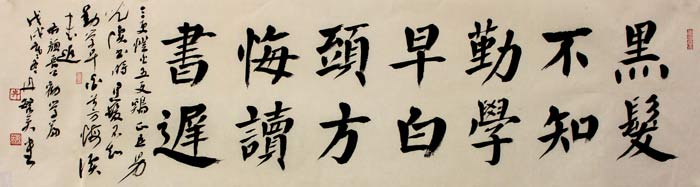 黑髮
不知
勤學
早白
頭方
悔讀
書遲
三更燈火五更鷄正是男
兒讀書時黑髮不知
勤學早白首方悔讀
書遲
勸學
戊戌
書